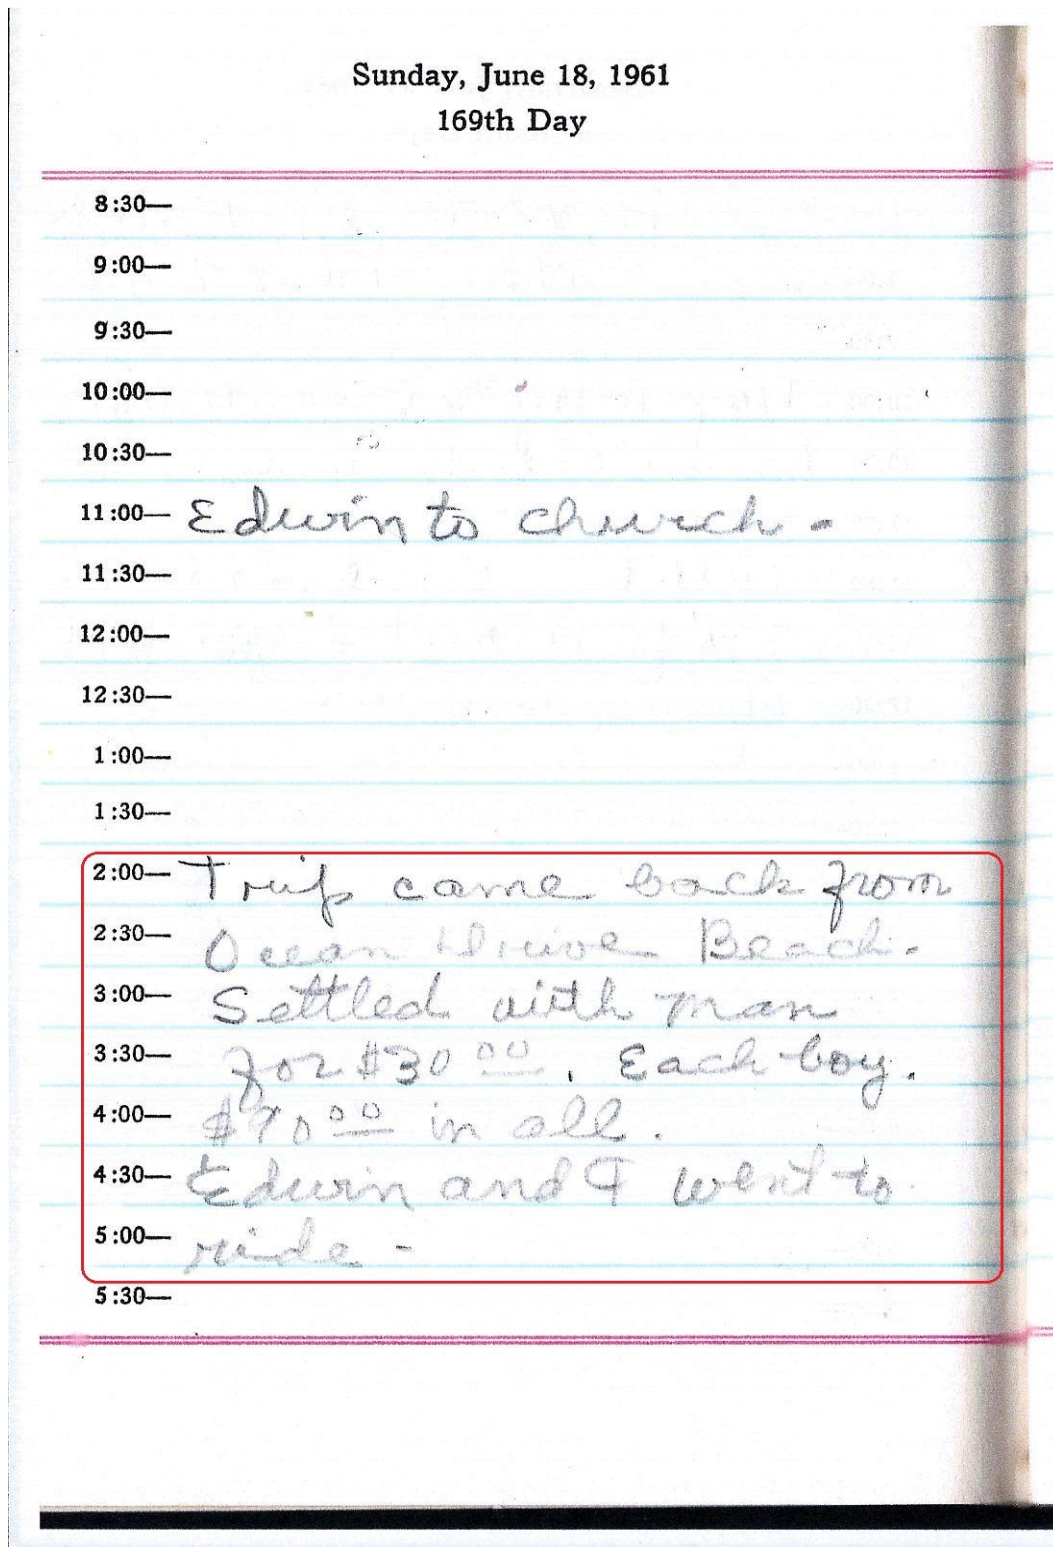 Sunday, June 18, 1961
169th Day
8:30—
9:00—
9:30—
10:00—
10:30—
11:00— Edwin to church -
11:30—
12:00—
12:30—
1:00—
1:30—
2:00— Trip came back from
2:30— Ocean Drive Beach.
3:00— Settled with man
3:30— for $30 00. Each boy.
4:00— $90 00 in all.
4:30— Edwin and I went to
5:00— ride -
5:30—